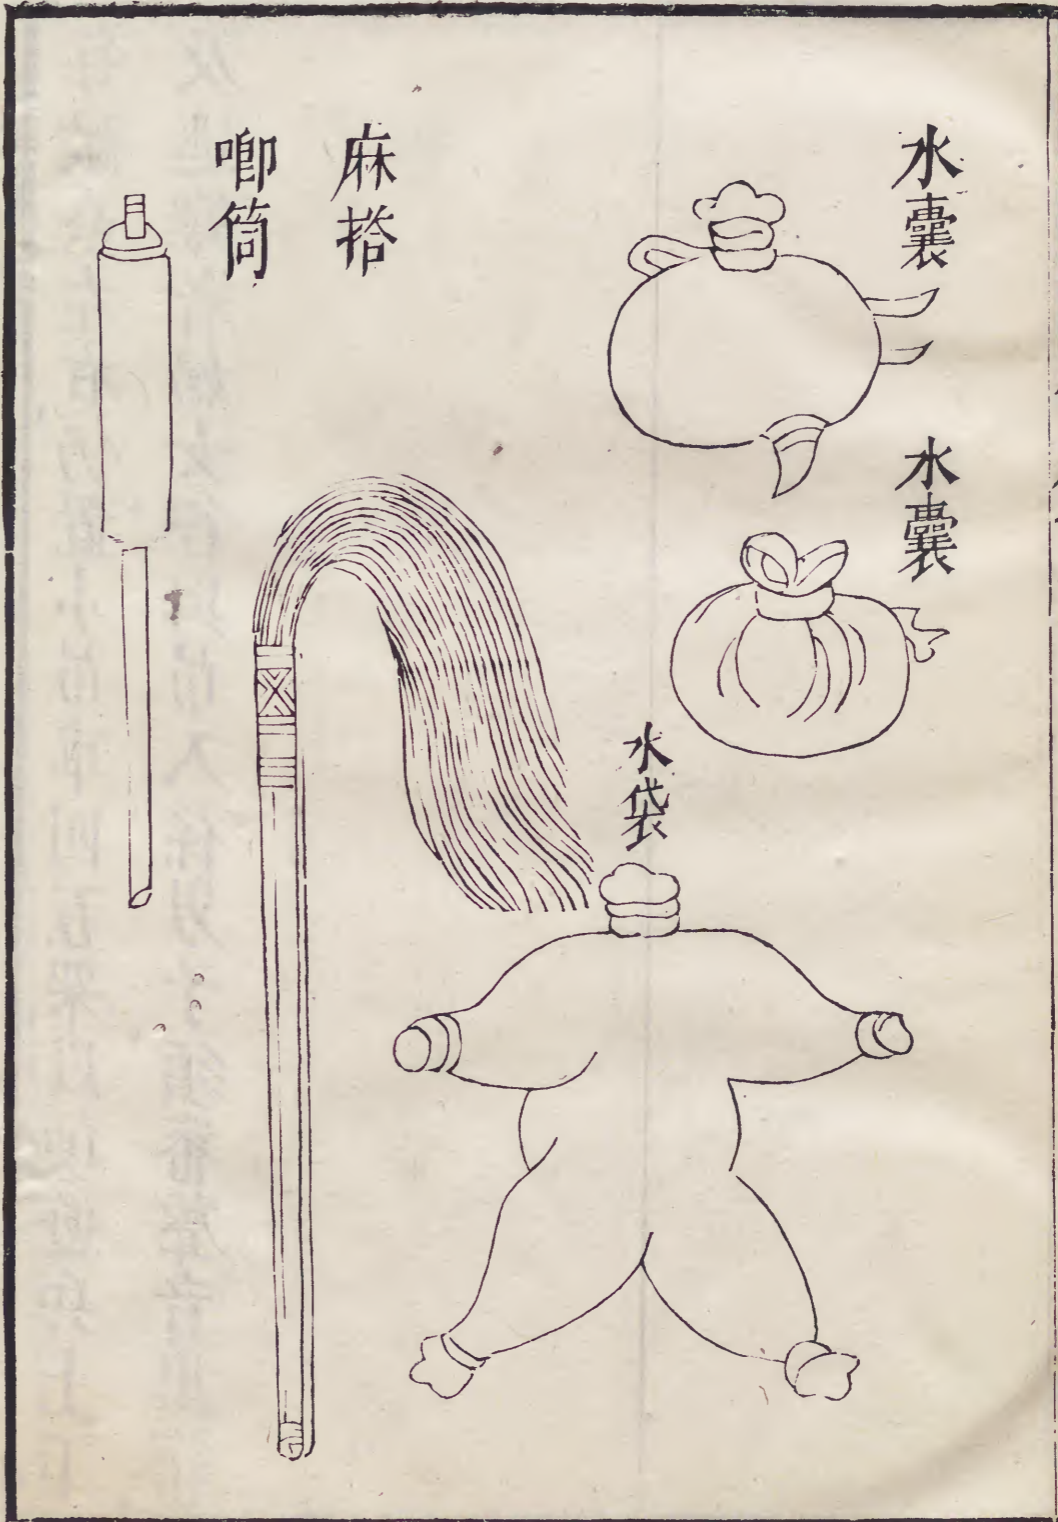 水囊
水囊
水袋
麻搭
唧筒